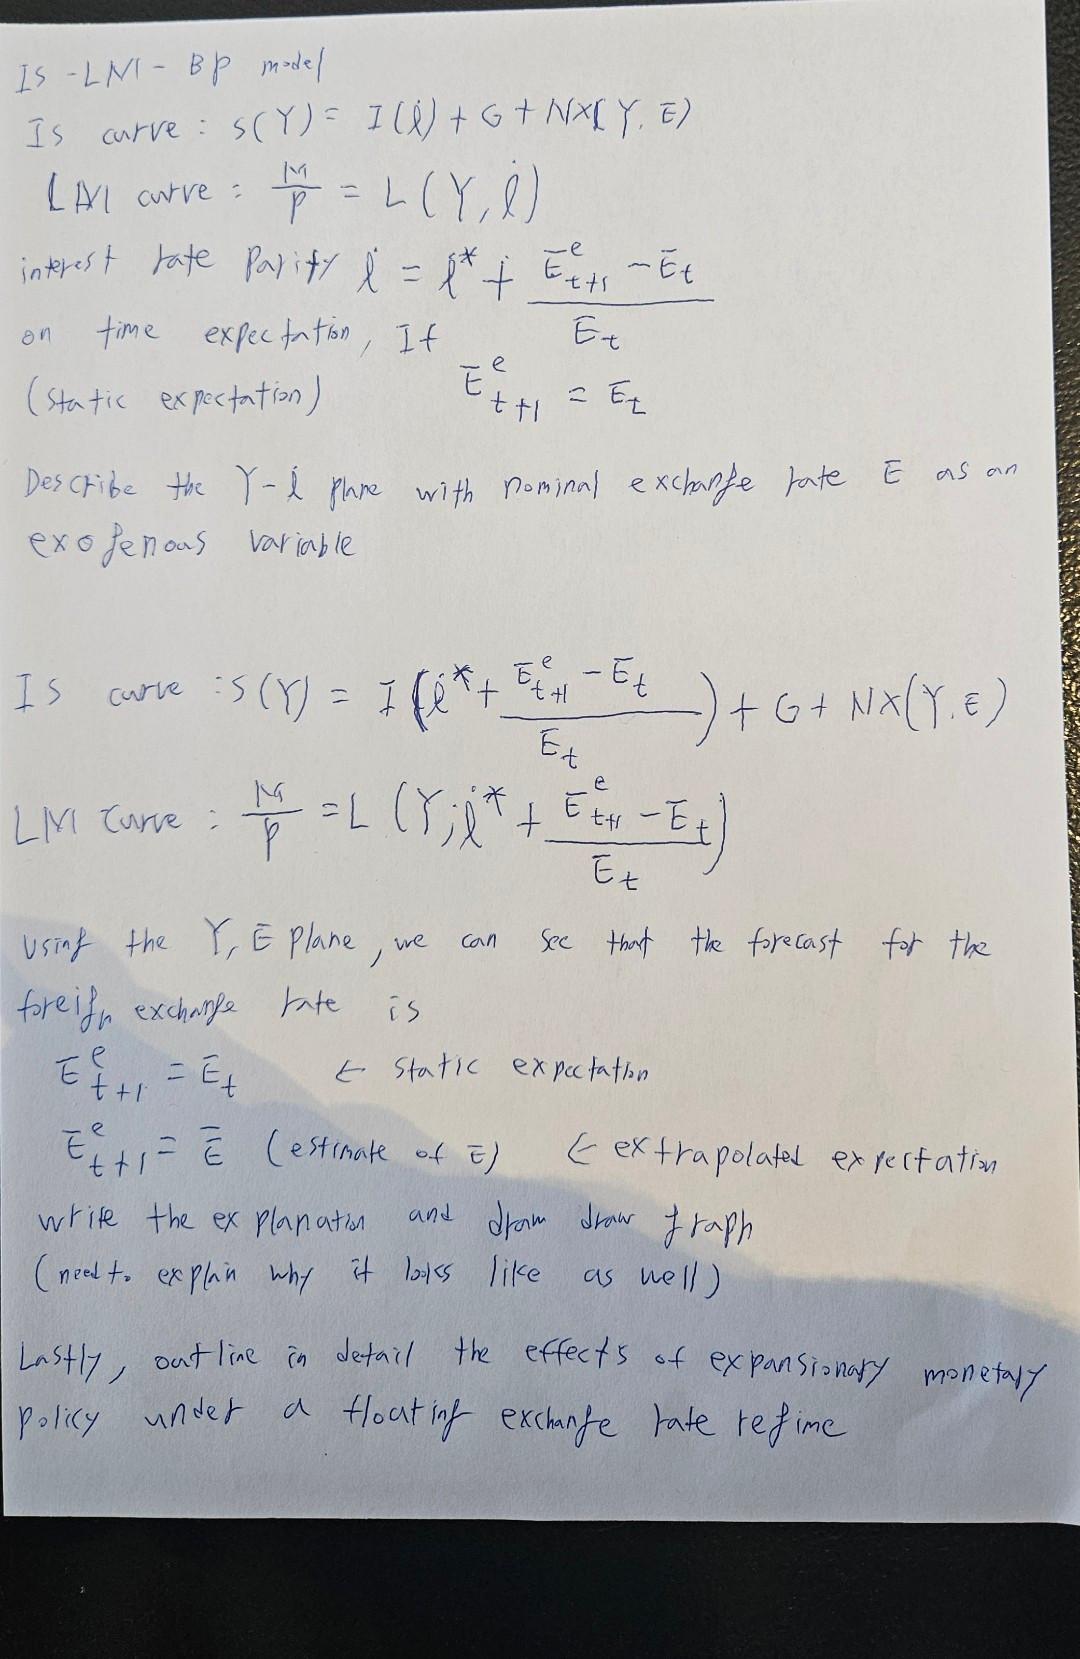 IS - LM - BP model
IS curve : S(Y) = I(i) + G + NX(Y, E)
LM curve : M/P = L(Y, i)
interest rate Parity i = i* + (E^e_{t+1} - E_t)/E_t
on time expectation, If
(static expectation) E^e_{t+1} = E_t
Describe the Y-i plane with nominal exchange rate E as an
exogenous variable
IS curve : S(Y) = I(i* + (E^e_{t+1} - E_t)/E_t) + G + NX(Y, E)
LM curve : M/P = L(Y; i* + (E^e_{t+1} - E_t)/E_t)
Using the Y, E plane, we can see that the forecast for the
foreign exchange rate is
E^e_{t+1} = E_t ← static expectation
E^e_{t+1} = Ē (estimate of E) ← extrapolated expectation
write the explanation and draw draw graph
(need to explain why it looks like as well)
Lastly, outline in detail the effects of expansionary monetary
policy under a floating exchange rate regime